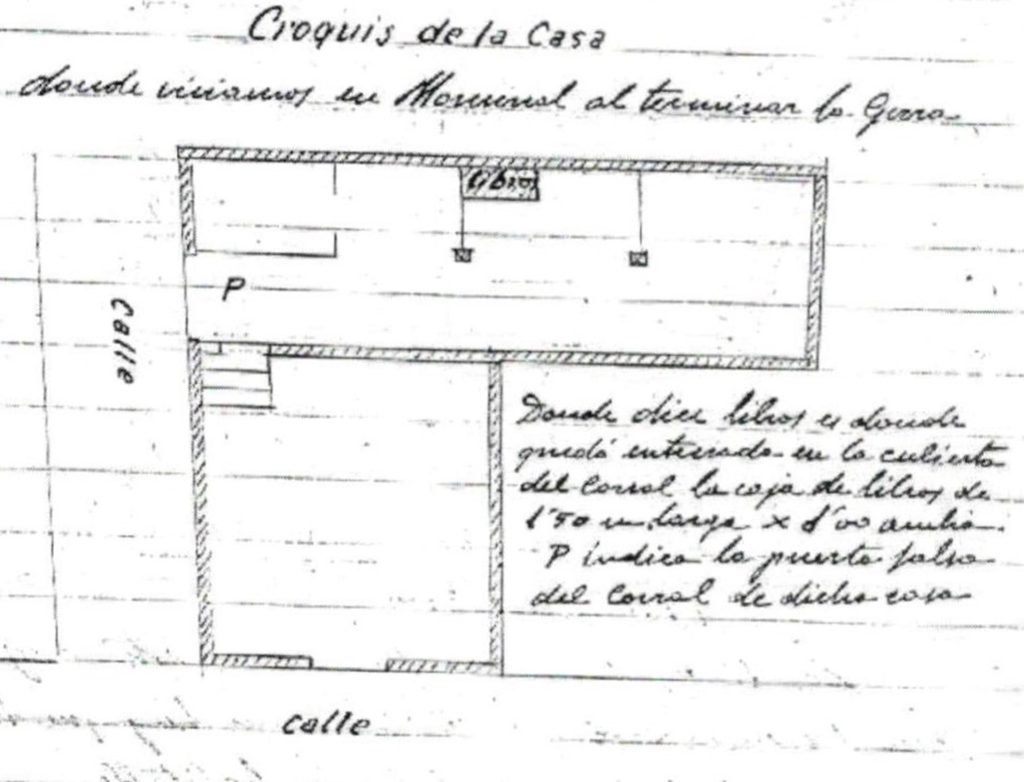 Croquis de la Casa
donde viviamos en Monreal al terminar la Gerra
libros
P
Calle
Donde dice libros es donde
quedó enterrada en la cubierta
del Corral la caja de libros de
1'50 m larga x 1'00 ancha.
P indica la puerta falsa
del Corral de dicha casa
calle